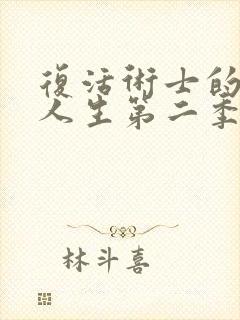 復活術士的
人生第二季
林斗喜